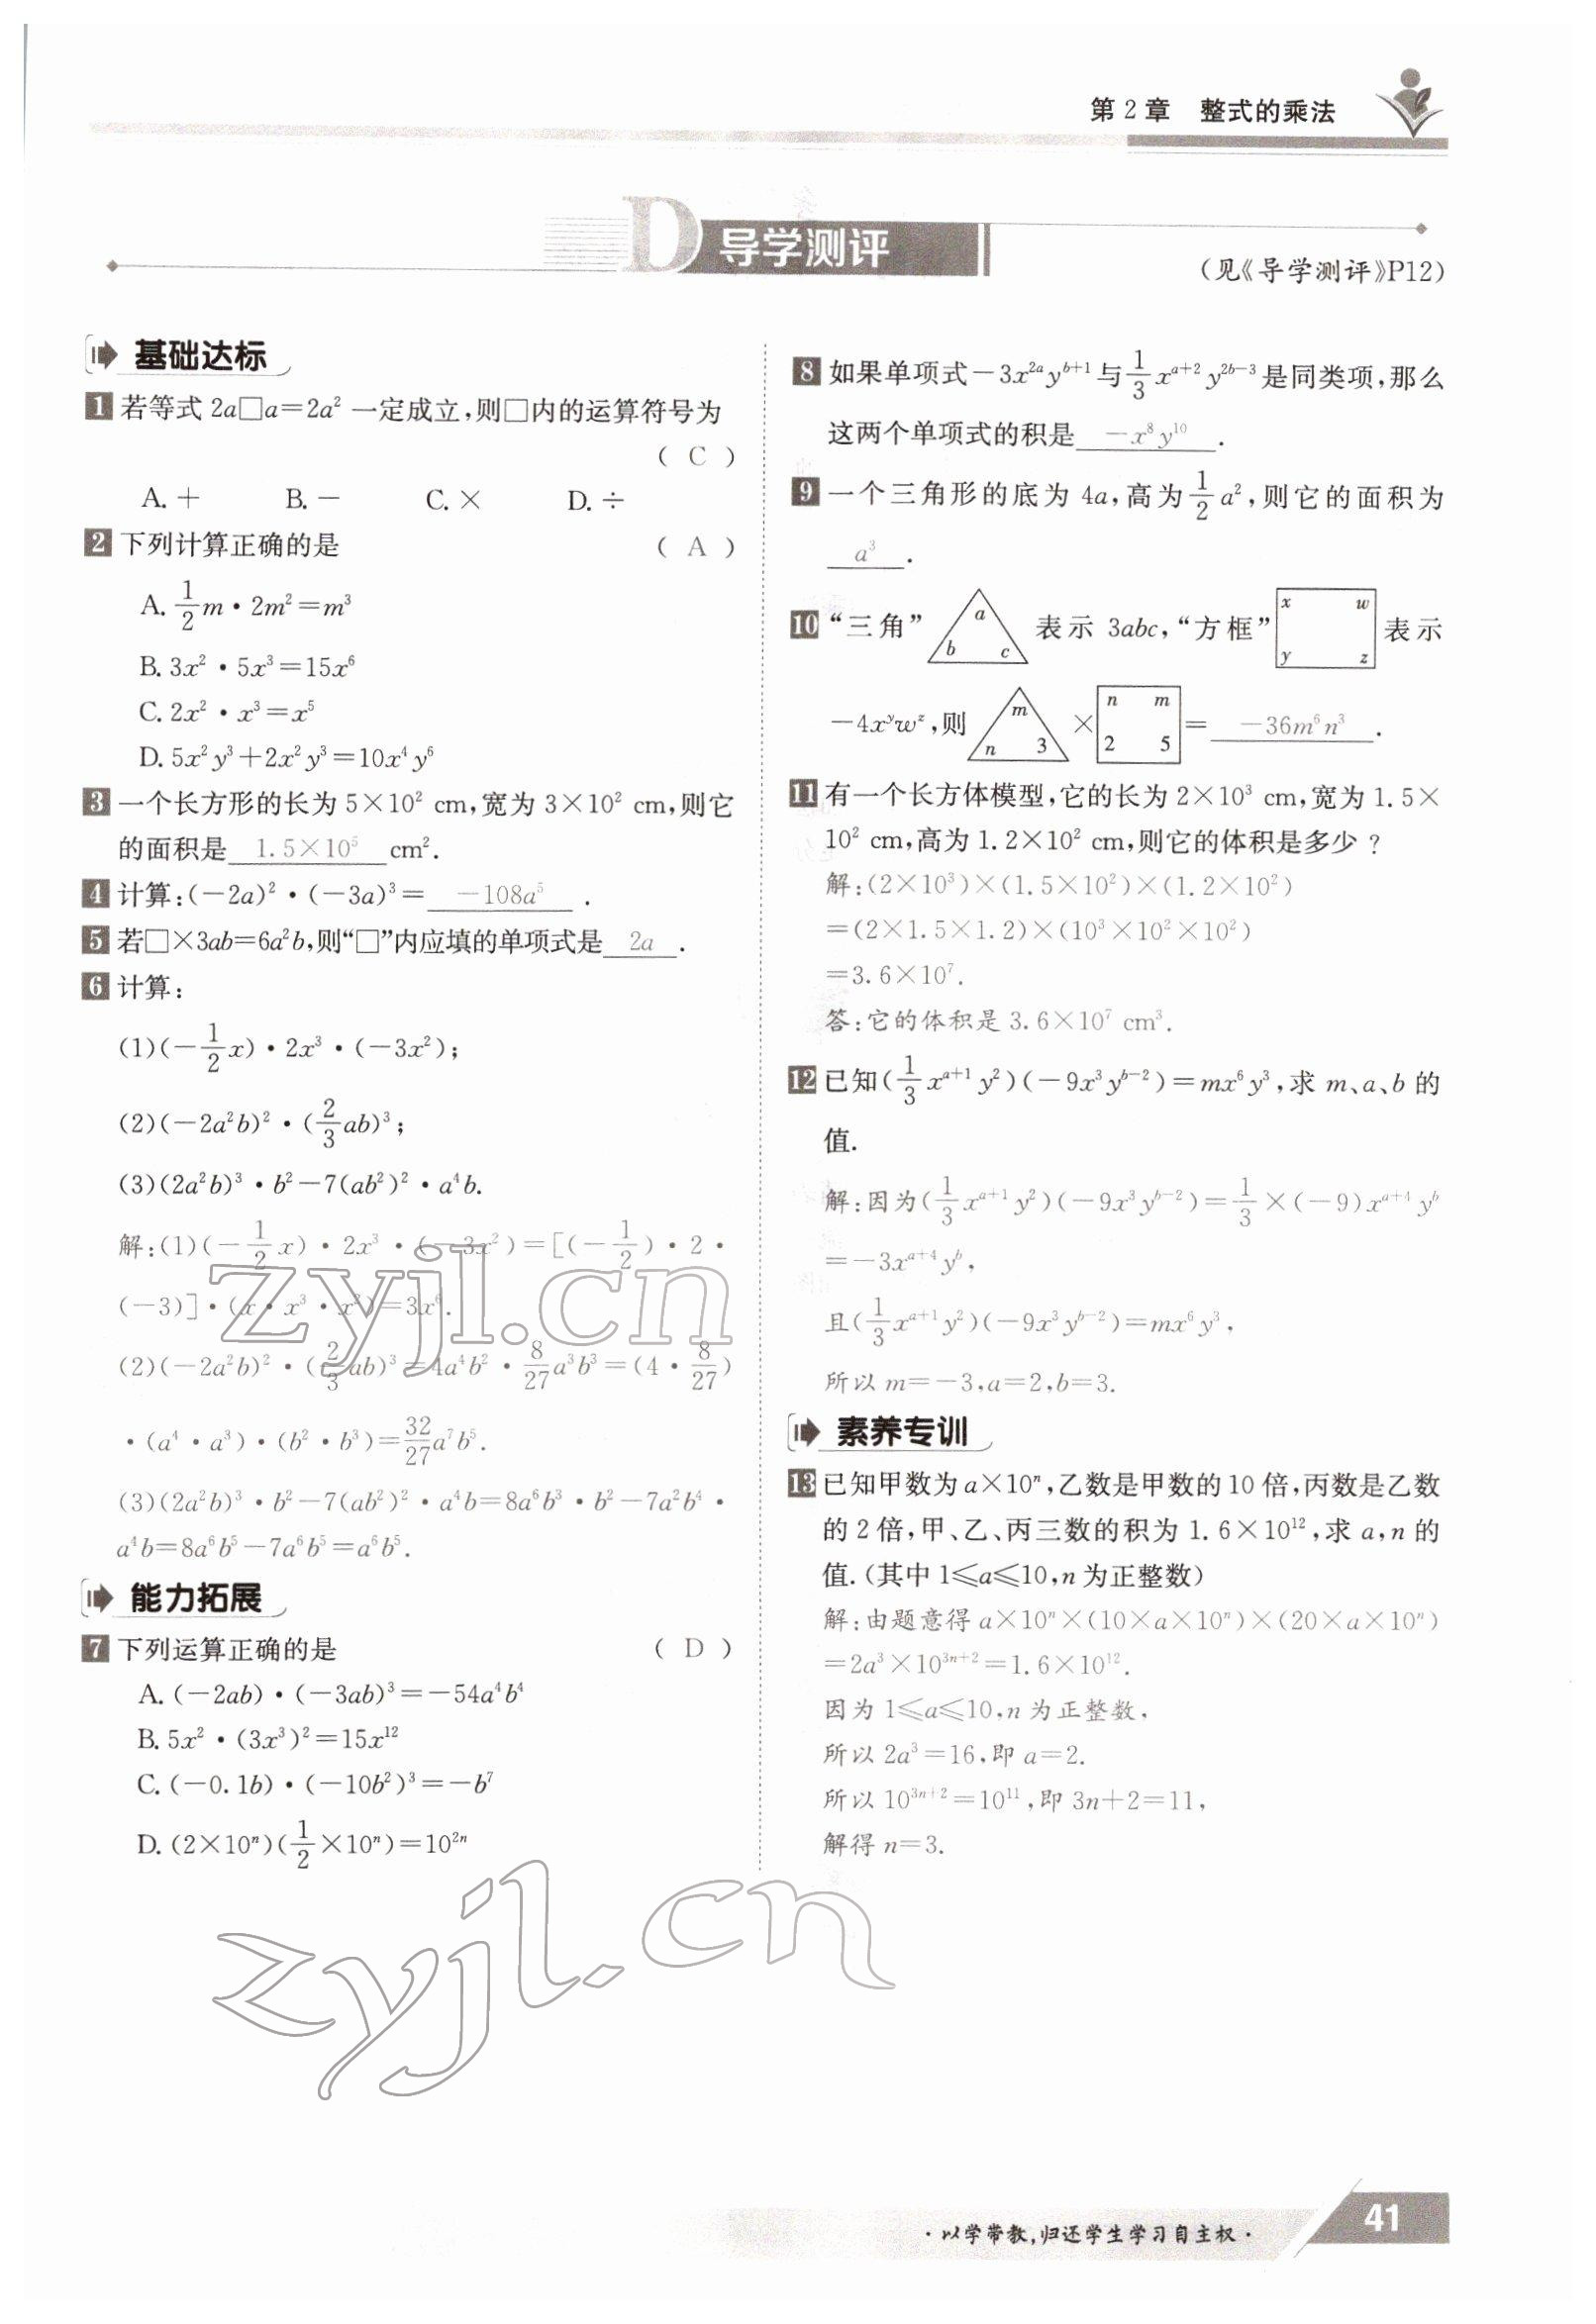 第2章 整式的乘法
D 导学测评
(见《导学测评》P12)
基础达标
1 若等式 2a□a=2a² 一定成立,则□内的运算符号为
( C )
A. + B. − C. × D. ÷
2 下列计算正确的是 ( A )
A. 1/2 m·2m²=m³
B. 3x²·5x³=15x⁶
C. 2x²·x³=x⁵
D. 5x²y³+2x²y³=10x⁴y⁶
3 一个长方形的长为 5×10² cm,宽为 3×10² cm,则它
的面积是 1.5×10⁵ cm².
4 计算:(−2a)²·(−3a)³= −108a⁵ .
5 若□×3ab=6a²b,则“□”内应填的单项式是 2a .
6 计算:
(1)(−1/2 x)·2x³·(−3x²);
(2)(−2a²b)²·(2/3 ab)³;
(3)(2a²b)³·b²−7(ab²)²·a⁴b.
解:(1)(−1/2 x)·2x³·(−3x²)=[(−1/2)·2·
(−3)]·(x·x³·x²)=3x⁶.
(2)(−2a²b)²·(2/3 ab)³=4a⁴b²·8/27 a³b³=(4·8/27)
·(a⁴·a³)·(b²·b³)=32/27 a⁷b⁵.
(3)(2a²b)³·b²−7(ab²)²·a⁴b=8a⁶b³·b²−7a²b⁴·
a⁴b=8a⁶b⁵−7a⁶b⁵=a⁶b⁵.
能力拓展
7 下列运算正确的是 ( D )
A. (−2ab)·(−3ab)³=−54a⁴b⁴
B. 5x²·(3x³)²=15x¹²
C. (−0.1b)·(−10b²)³=−b⁷
D. (2×10ⁿ)(1/2×10ⁿ)=10²ⁿ
8 如果单项式−3x^(2a)y^(b+1)与1/3 x^(a+2)y^(2b−3)是同类项,那么
这两个单项式的积是 −x⁸y¹⁰ .
9 一个三角形的底为 4a,高为 1/2 a²,则它的面积为
a³ .
10 “三角” a b c 表示 3abc,“方框” x w y z 表示
−4x^y w^z,则 m n 3 × n m 2 5 = −36m⁶n³ .
11 有一个长方体模型,它的长为 2×10³ cm,宽为 1.5×
10² cm,高为 1.2×10² cm,则它的体积是多少?
解:(2×10³)×(1.5×10²)×(1.2×10²)
=(2×1.5×1.2)×(10³×10²×10²)
=3.6×10⁷.
答:它的体积是 3.6×10⁷ cm³.
12 已知(1/3 x^(a+1)y²)(−9x³y^(b−2))=mx⁶y³,求 m、a、b 的
值.
解:因为(1/3 x^(a+1)y²)(−9x³y^(b−2))=1/3×(−9)x^(a+4)y^b
=−3x^(a+4)y^b,
且(1/3 x^(a+1)y²)(−9x³y^(b−2))=mx⁶y³,
所以 m=−3,a=2,b=3.
素养专训
13 已知甲数为 a×10ⁿ,乙数是甲数的 10 倍,丙数是乙数
的 2 倍,甲、乙、丙三数的积为 1.6×10¹²,求 a,n 的
值.(其中 1⩽a⩽10,n 为正整数)
解:由题意得 a×10ⁿ×(10×a×10ⁿ)×(20×a×10ⁿ)
=2a³×10^(3n+2)=1.6×10¹².
因为 1⩽a⩽10,n 为正整数,
所以 2a³=16,即 a=2.
所以 10^(3n+2)=10¹¹,即 3n+2=11,
解得 n=3.
zyjl.cn
zyjl.cn
·以学带教,归还学生学习自主权·
41